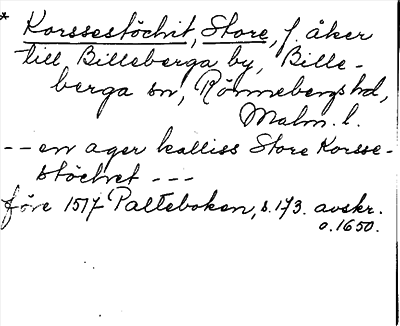 * Korssestöchit, Store, f. åker
till Billeberga by, Bille-
berga sn, Rönnebergs hd,
Malm. l.
-- en ager kalliss Store Korsse-
stöchet ---
före 1517 Palteboken, s. 173. avskr.
o. 1650.